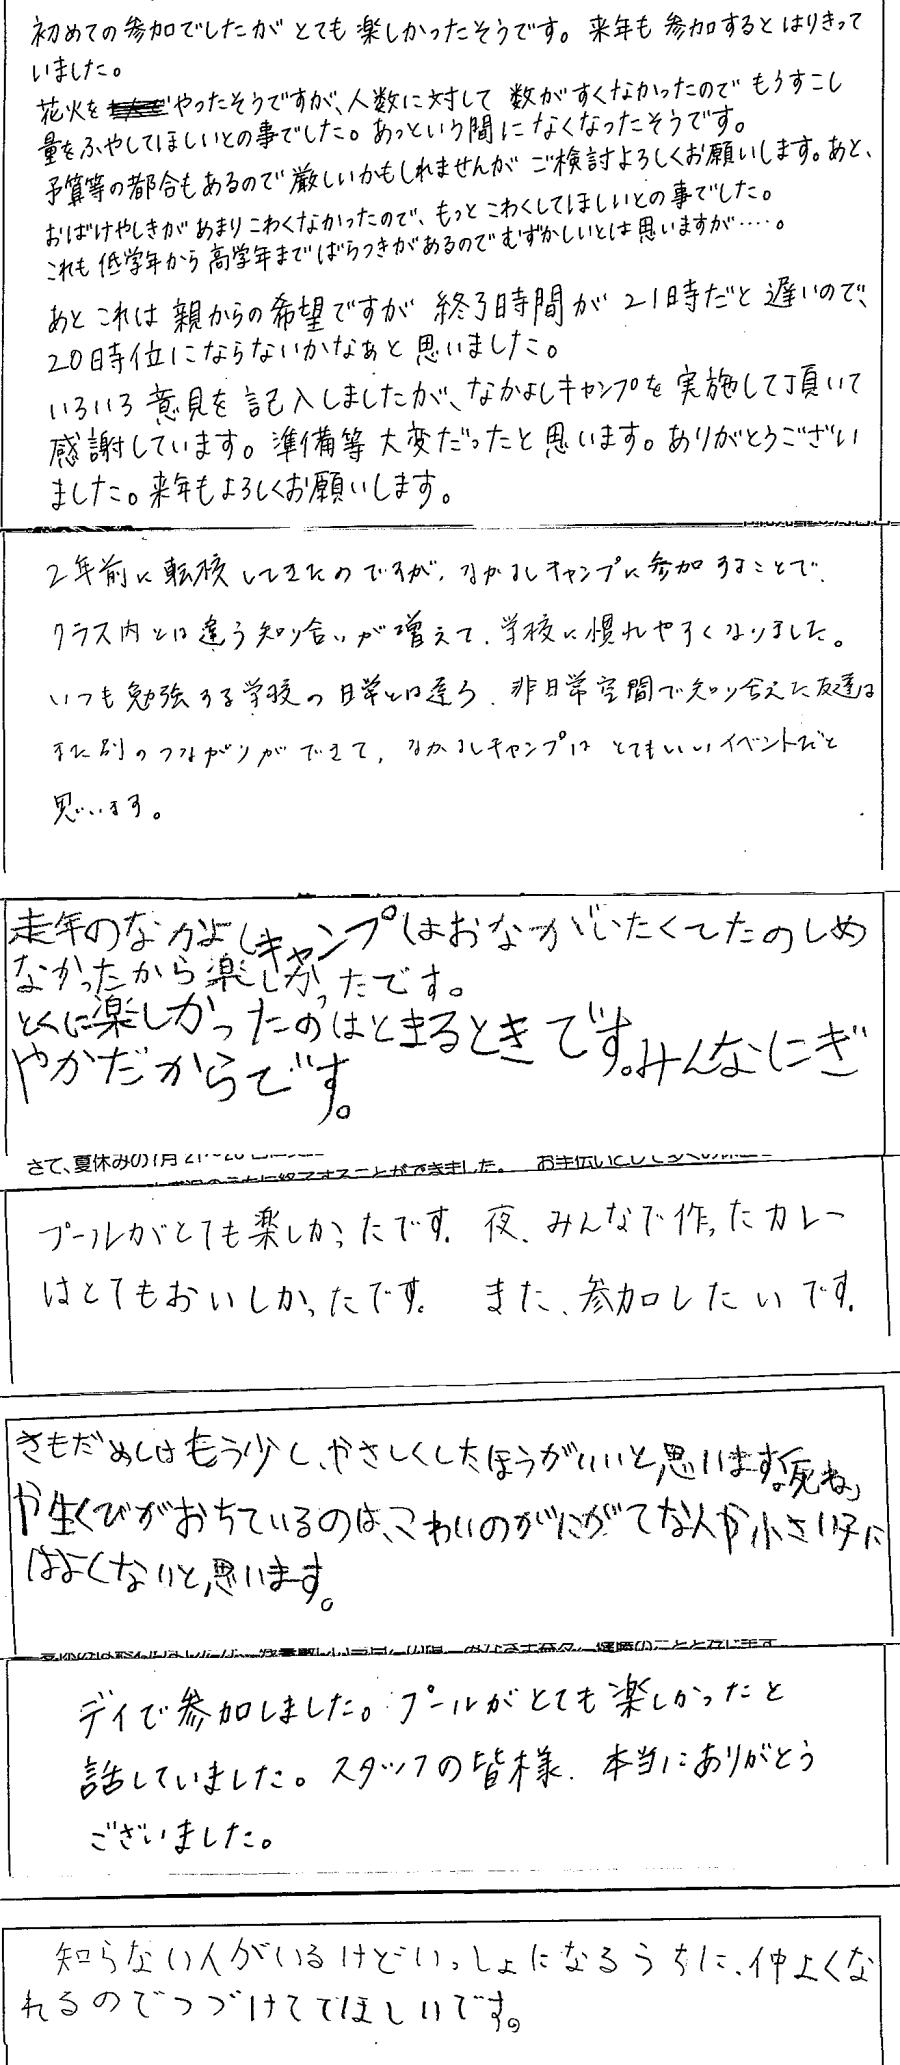 初めての参加でしたが とても 楽しかったそうです。来年も 参加するとはりきって
いました。
花火を やったそうですが、人数に対して 数がすくなかったので もうすこし
量をふやしてほしいとの事でした。あっという間になくなったそうです。
予算等の都合もあるので 厳しいかもしれませんが ご検討よろしくお願いします。あと、
おばけやしきが あまりこわくなかったので、もっと こわくしてほしいとの事でした。
これも 低学年から 高学年まで ばらつきがあるのでむずかしいとは思いますが‥‥。
あと これは 親からの希望ですが 終了時間が 21時だと 遅いので、
20時位にならないかなぁと 思いました。
いろいろ 意見を 記入しましたが、なかよしキャンプを 実施して頂いて
感謝しています。準備等 大変だったと思います。ありがとうござい
ました。来年もよろしくお願いします。
2年前に転校してきたのですが、なかよしキャンプに参加することで、
クラス内とは違う知り合いが増えて、学校に慣れやすくなりました。
いつも勉強する学校の日常とは違う、非日常空間で知り合えた友達は
また別のつながりができて、なかよしキャンプは とてもいいイベントだと
思います。
去年のなかよしキャンプはおなかがいたくてたのしめ
なかったから楽しかったです。
とくに楽しかったのはとまるときです。みんなにぎ
やかだからです。
さて、夏休みの7月
することができました。 お手伝いとして多くの
プールがとても楽しかったです。夜、みんなで作ったカレー
はとてもおいしかったです。 また、参加したいです。
きもだめしはもう少しやさしくしたほうがいいと思います。「死ね」
や生くびがおちているのは、こわいのがにがてな人や小さい子に
はよくないと思います。
デイで参加しました。プールがとても楽しかったと
話していました。スタッフの皆様、本当にありがとう
ございました。
知らない人がいるけどいっしょになるうちに、仲よくな
れるのでつづけててほしいです。